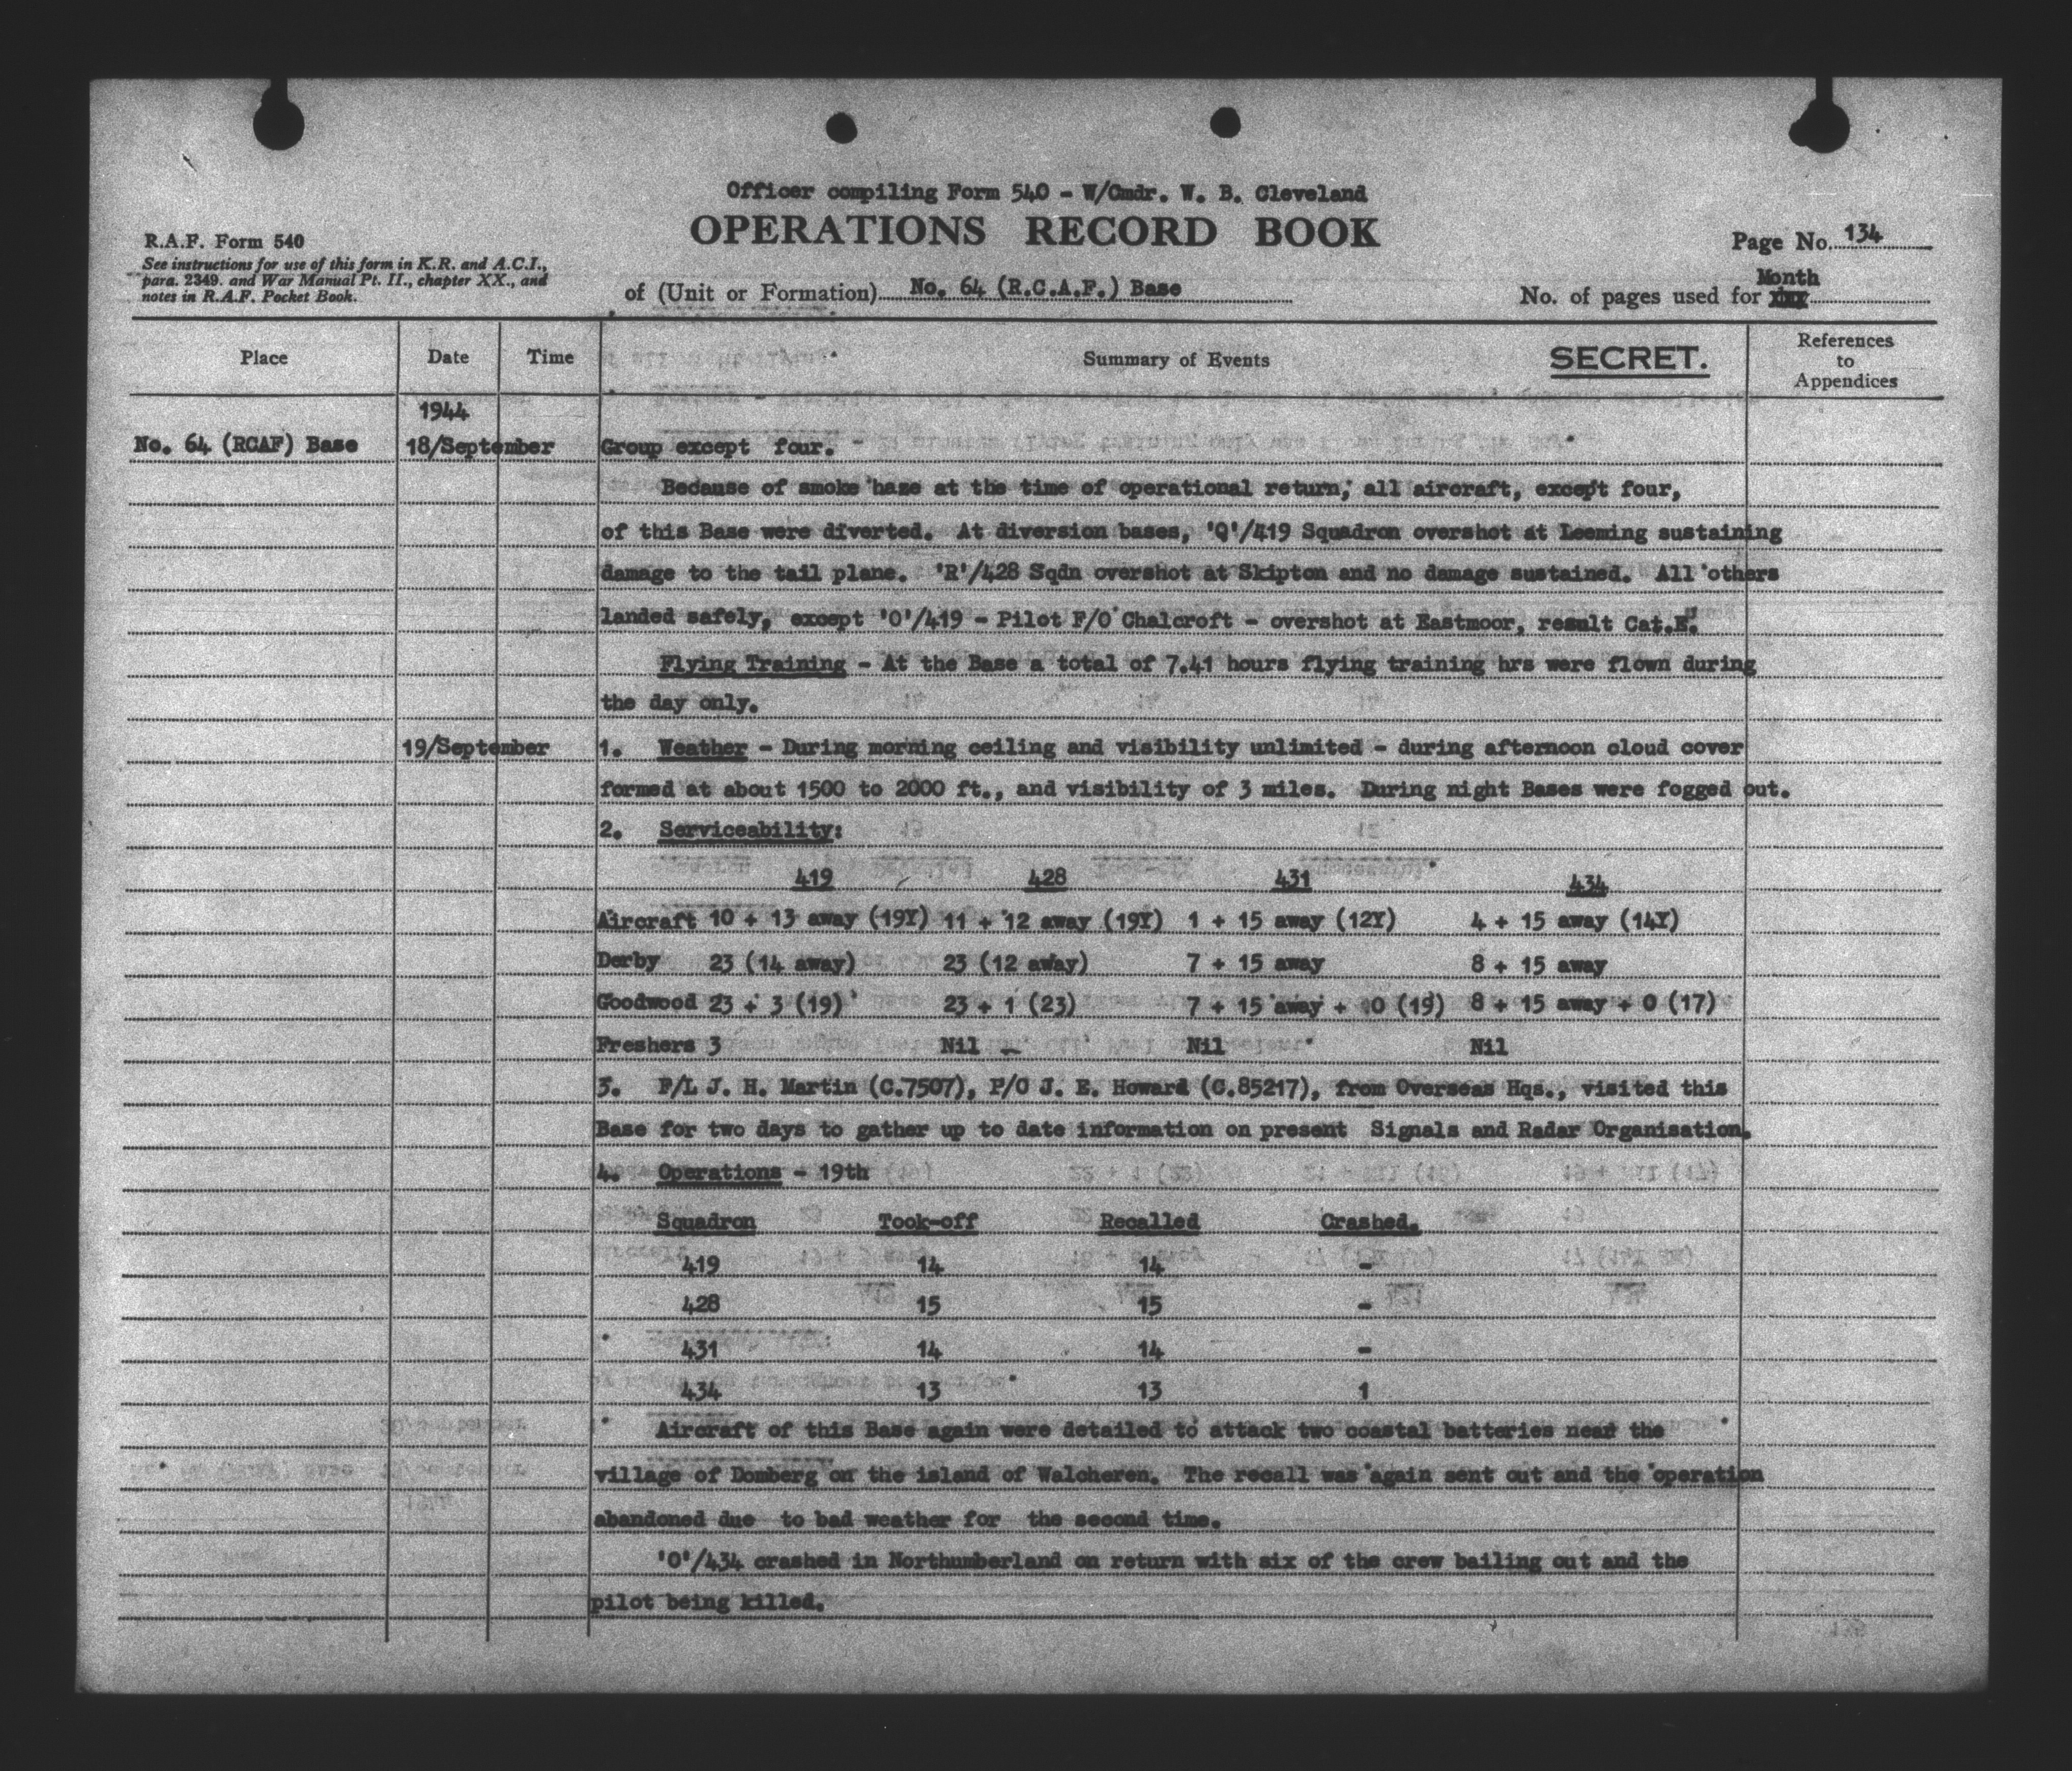 Officer compiling Form 540 - W/Cmdr. W. B. Cleveland
OPERATIONS RECORD BOOK
R.A.F. Form 540
See instructions for use of this form in K.R. and A.C.I.,
para. 2349. and War Manual Pt. II., chapter XX., and
notes in R.A.F. Pocket Book.
Page No. 134
of (Unit or Formation) No. 64 (R.C.A.F.) Base
Month
No. of pages used for
Place Date Time Summary of Events SECRET. References to Appendices
1944
No. 64 (RCAF) Base 18/September Group except four.
Because of smoke haze at the time of operational return, all aircraft, except four,
of this Base were diverted. At diversion bases, 'Q'/419 Squadron overshot at Leeming sustaining
damage to the tail plane. 'R'/428 Sqdn overshot at Skipton and no damage sustained. All others
landed safely, except 'O'/419 - Pilot F/O Chalcroft - overshot at Eastmoor, result Cat.E."
Flying Training - At the Base a total of 7.41 hours flying training hrs were flown during
the day only.
19/September 1. Weather - During morning ceiling and visibility unlimited - during afternoon cloud cover
formed at about 1500 to 2000 ft., and visibility of 3 miles. During night Bases were fogged out.
2. Serviceability:
419 428 431 434
Aircraft 10 + 13 away (19Y) 11 + 12 away (19Y) 1 + 15 away (12Y) 4 + 15 away (14Y)
Derby 23 (14 away) 23 (12 away) 7 + 15 away 8 + 15 away
Goodwood 23 + 3 (19) 23 + 1 (23) 7 + 15 away + 0 (19) 8 + 15 away + 0 (17)
Freshers 3 Nil Nil Nil
3. F/L J. H. Martin (C.7507), P/O J. E. Howard (C.85217), from Overseas Hqs., visited this
Base for two days to gather up to date information on present Signals and Radar Organisation.
4. Operations - 19th
Squadron Took-off Recalled Crashed.
419 14 14 -
428 15 15 -
431 14 14 -
434 13 13 1
Aircraft of this Base again were detailed to attack two coastal batteries near the
village of Domberg on the island of Walcheren. The recall was again sent out and the operation
abandoned due to bad weather for the second time.
'O'/434 crashed in Northumberland on return with six of the crew bailing out and the
pilot being killed.